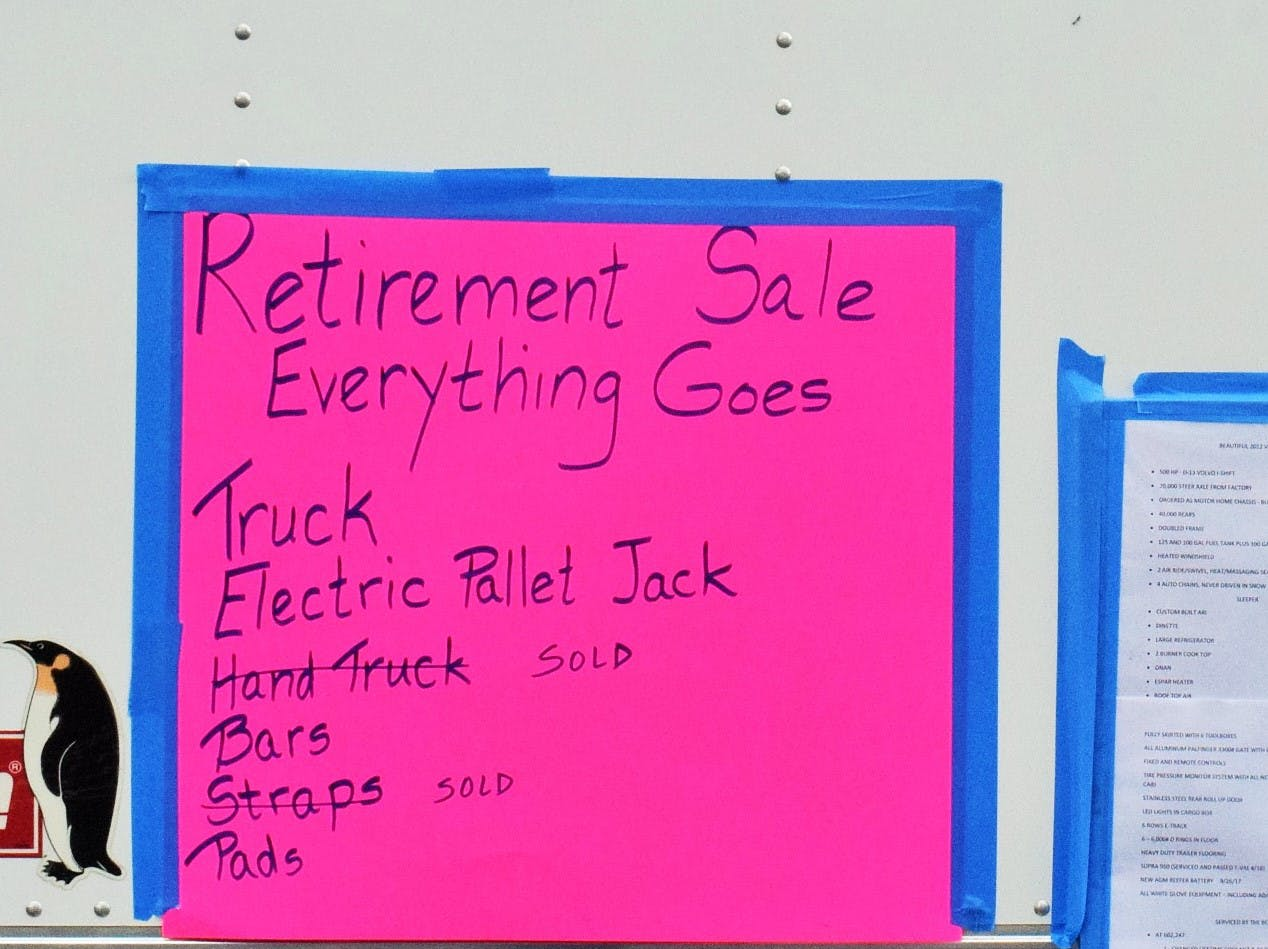 Retirement Sale
Everything Goes
Truck
Electric Pallet Jack
Hand Truck SOLD
Bars
Straps SOLD
Pads
®
BEAUTIFUL 2012 V
• 500 HP - D-13 VOLVO I-SHIFT
• 20,000 STEER AXLE FROM FACTORY
• ORDERED AS MOTOR HOME CHASSIS -
• 40,000 REARS
• DOUBLED FRAME
• 125 AND 100 GAL FUEL TANK PLUS 100 GA
• HEATED WINDSHIELD
• 2 AIR RIDE/SWIVEL, HEAT/MASSAGING SE
• 4 AUTO CHAINS, NEVER DRIVEN IN SNOW
SLEEPER
• CUSTOM BUILT ARI
• DINETTE
• LARGE REFRIGERATOR
• 2 BURNER COOK TOP
• ONAN
• ESPAR HEATER
• ROOF TOP AIR
FULLY SKIRTED WITH 6 TOOLBOXES
ALL ALUMINUM PALFINGER 3300# GATE WITH
FIXED AND REMOTE CONTROLS
TIRE PRESSURE MONITOR SYSTEM WITH ALL
CAB)
STAINLESS STEEL REAR ROLL UP DOOR
LED LIGHTS IN CARGO BOX
6 ROWS E-TRACK
6 – 6,000# D RINGS IN FLOOR
HEAVY DUTY TRAILER FLOORING
SUPRA 950 (SERVICED AND PASSED
NEW AGM REEFER BATTERY 9/26/17
ALL WHITE GLOVE EQUIPMENT - INCLUDING
SERVICED BY THE
• AT 602,247